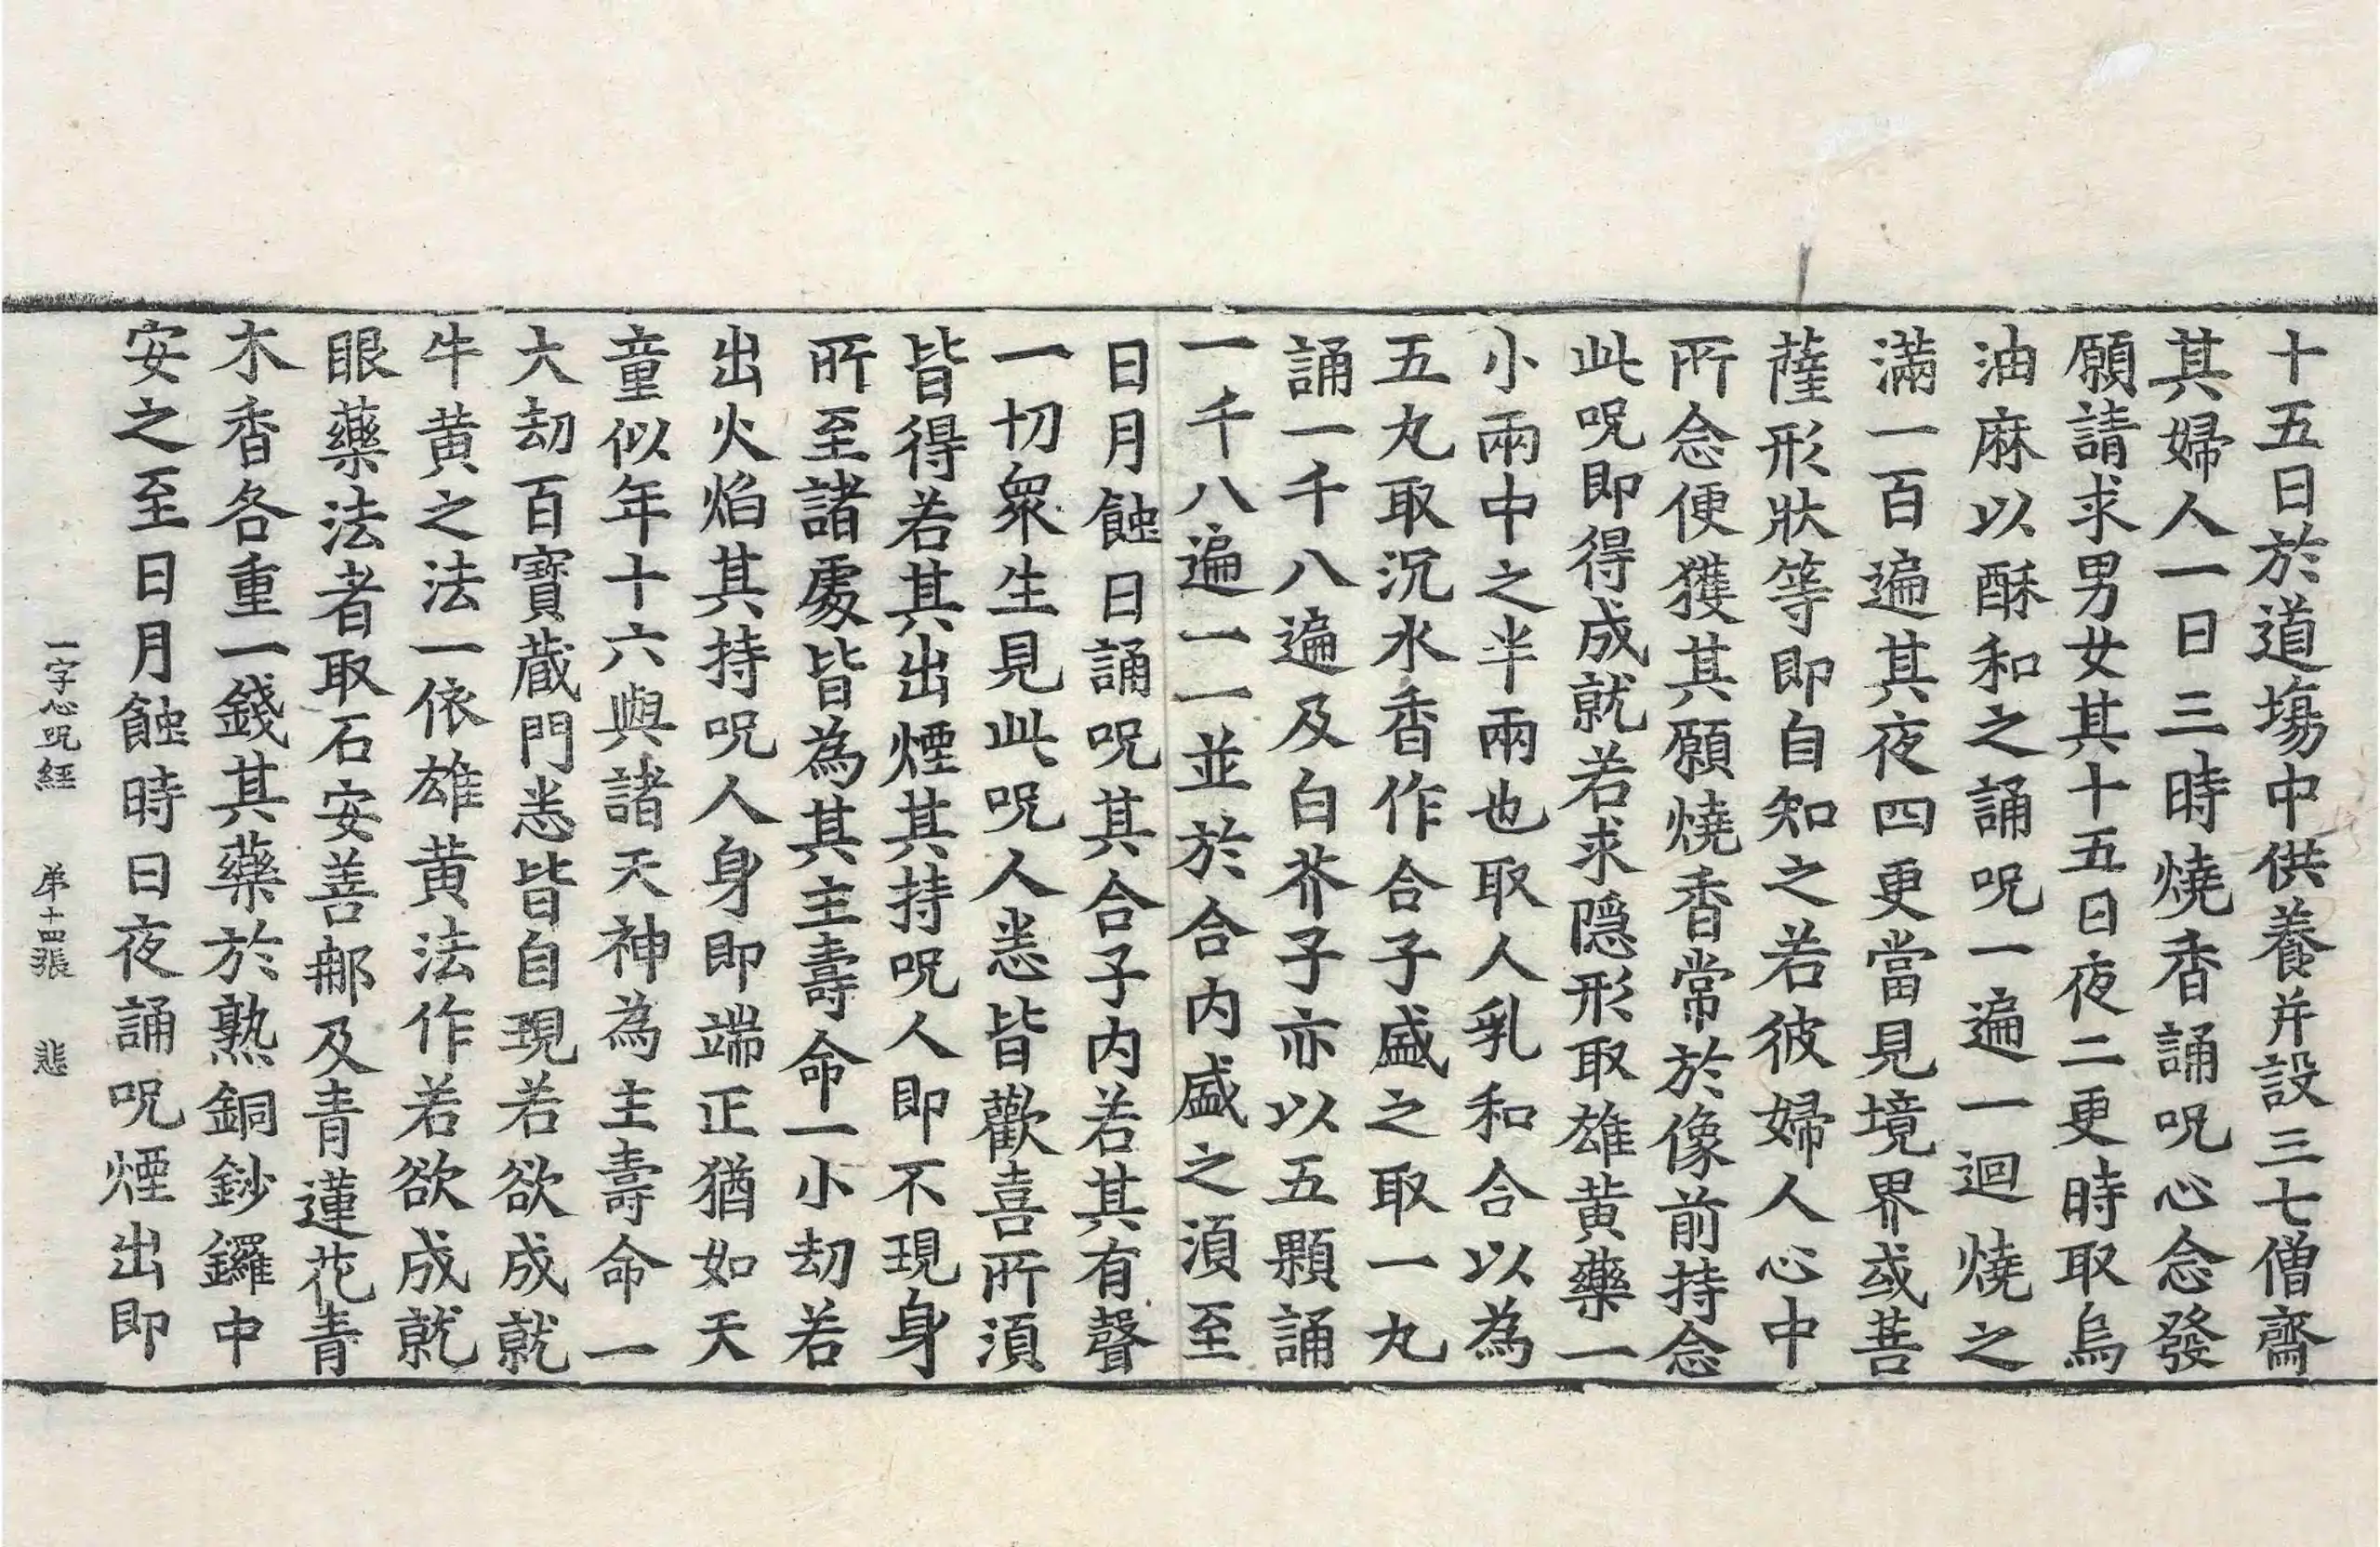 十五日於道場中供養并設三七僧齋
其婦人一日三時燒香誦呪心念發
願請求男女其十五日夜二更時取烏
油麻以酥和之誦呪一遍一迴燒之
滿一百遍其夜四更當見境界或菩
薩形狀等即自知之若彼婦人心中
所念便獲其願燒香常於像前持念
此呪即得成就若求隱形取雄黃藥一
小兩中之半兩也取人乳和合以為
五丸取沉水香作合子盛之取一丸
誦一千八遍及白芥子亦以五顆誦
一千八遍一一並於合內盛之須至
日月蝕日誦呪其合子內若其有聲
一切衆生見此呪人悉皆歡喜所須
皆得若其出煙其持呪人即不現身
所至諸處皆為其主壽命一小劫若
出火焰其持呪人身即端正猶如天
童似年十六與諸天神為主壽命一
大劫百寶藏門悉皆自現若欲成就
牛黃之法一依雄黃法作若欲成就
眼藥法者取石安善那及青蓮花青
木香各重一錢其藥於熟銅鈔鑼中
安之至日月蝕時日夜誦呪煙出即
一字心呪經 弟十四張 悲